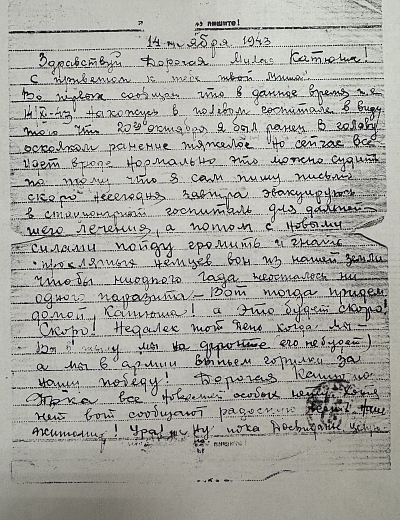 не пишите!
14 ноября 1943
Здравствуй Дорогая Милая Катюша!
С приветом к тебе твой Миша.
Во первых сообщаю что в данное время т.е
14/XI-43 нахожусь в полевом госпитале в виду
того что 20го октября я был ранен в голову
осколком ранение тяжелое но сейчас все
идет вроде нормально это можно судить
по тому что я сам пишу письмо
скоро несегодня завтра эвакуируюсь
в стационарный госпиталь для дальней-
шего лечения, а потом с новыми
силами пойду громить и гнать
проклятых немцев вон из нашей земли
чтобы ниодного гада неосталось ни
одного паразита – Вот тогда придем
домой, Катюша! а это будет скоро!
Скоро! Недалек тот день когда мы –
Вы в тылу мы на фронте его небудет)
а мы в армии выпьем горилки за
нашу победу! Дорогая Катю
все Новостей особых нет. Хотя
нет вот сообщают радостную весть
Житомир! Ура! Ну пока Досвидание